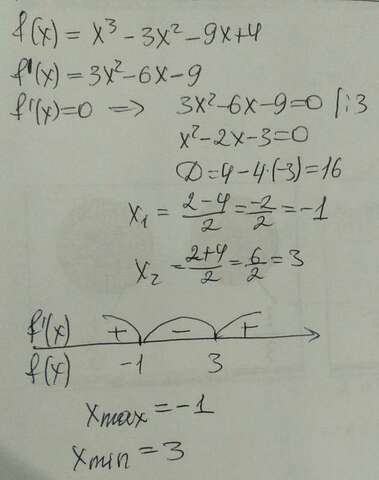 f(x) = x³ - 3x² - 9x + 4
f'(x) = 3x² - 6x - 9
f'(x) = 0 ⟹ 3x² - 6x - 9 = 0 |:3
x² - 2x - 3 = 0
D = 4 - 4·(-3) = 16
x₁ = (2-4)/2 = -2/2 = -1
x₂ = (2+4)/2 = 6/2 = 3
f'(x) + - +
f(x) -1 3
xmax = -1
xmin = 3